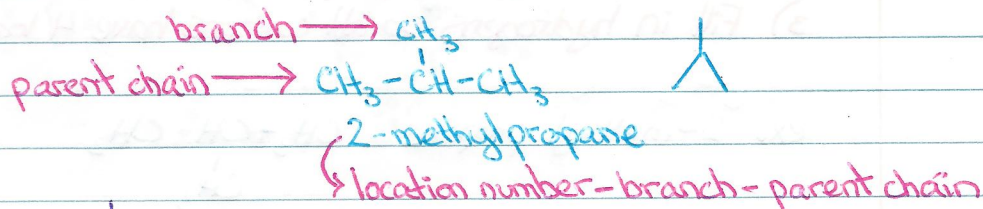 branch → CH3
parent chain → CH3-CH-CH3
2-methylpropane
location number-branch-parent chain